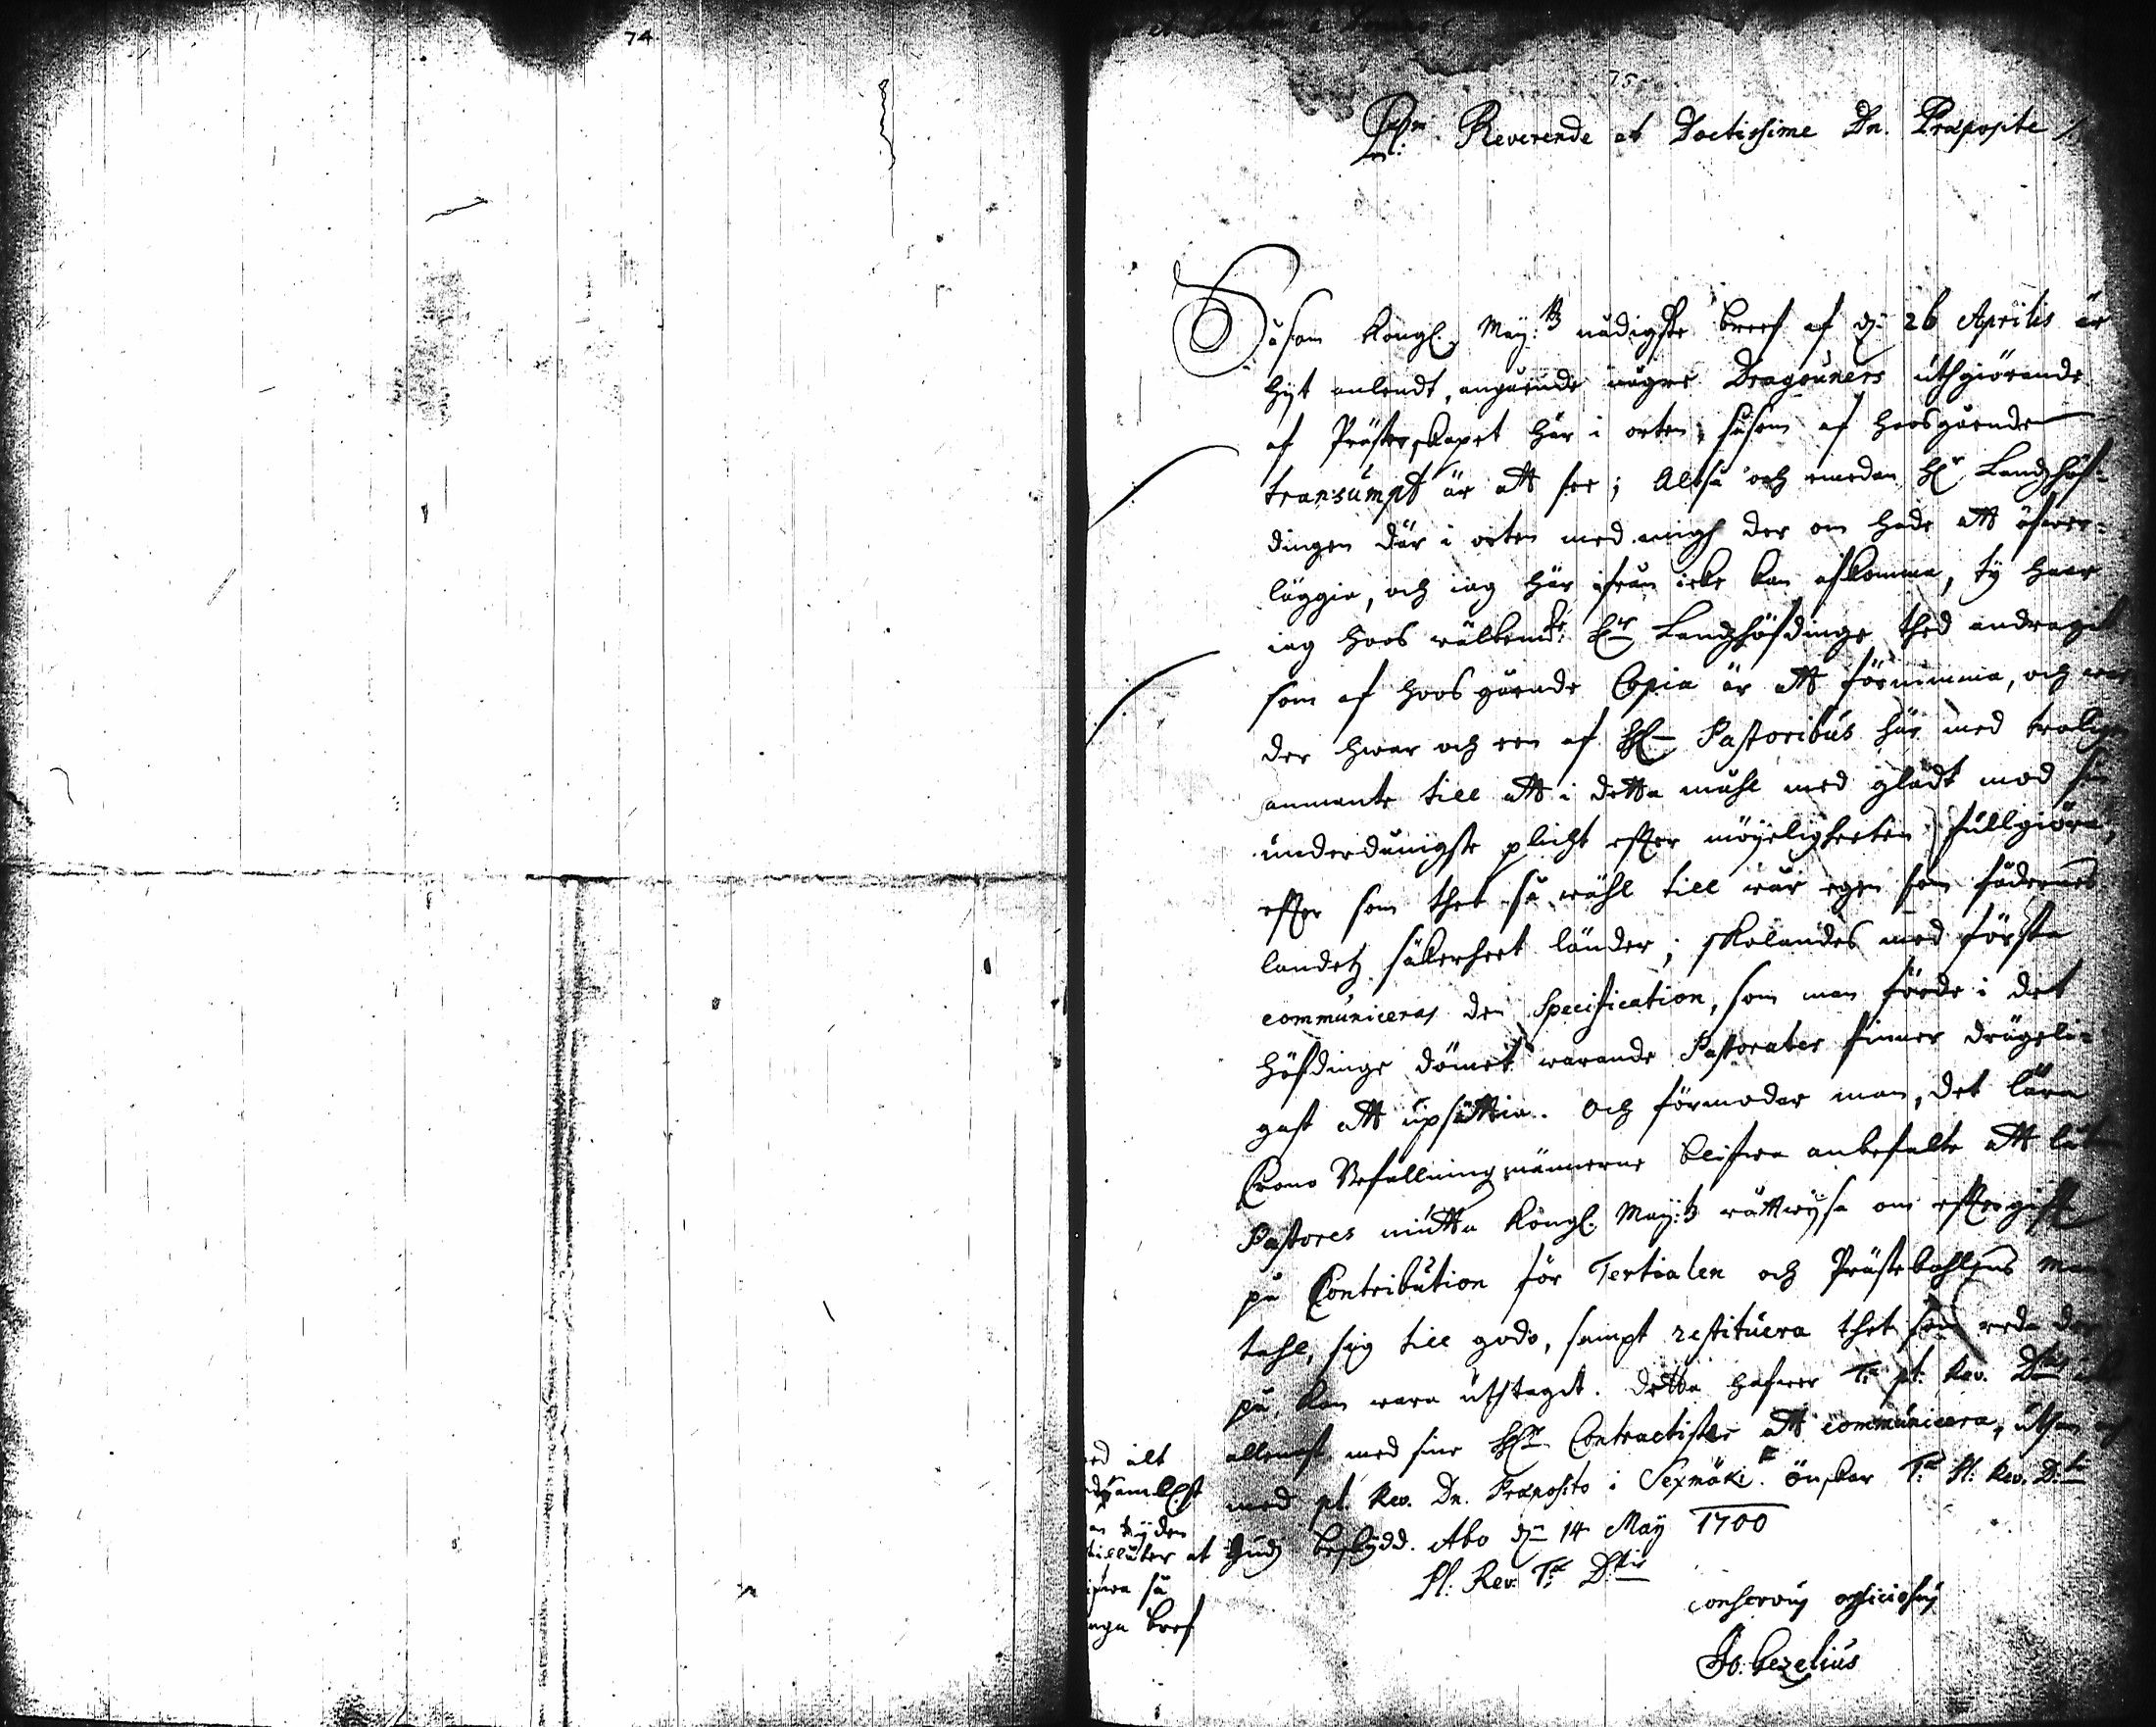 74
75
Pl: Reverende et Doctissime Dn. Præposite /.
Såsom Kongl. May:tz nådigste breef af d. 26 Aprilis är
hijt anlendt, angående någre Dragouners uthgiörande
af Prästerskapet här i orten, såsom af hoosgående
transumpt är att see; Altså och emedan Hr Landzhöf=
dingen där i orten med migh der om hade att öfwer=
läggia, och iag här ifrån icke kan afkomma, ty haar
iag hoos wälbem:te Hr Landzhöfdinge thed andragit
som af hoosgående Copia är att förnimma, och
der hwar och een af HH Pastoribus här med
anmante till att i detta måhl med gladt mod
underdånigste plicht effter möyeligheeten fullgiöra,
effter som thet så wähl till wår egen som fädernes
landetz säkerheet länder; skolandes med första
communiceras den Specification, som man förde i det
höfdinge dömet warande Pastorater finner drägeli=
gast att upsättia. Och förmodar man, det lära
Crono Befallningzmännerne blifwa anbefalte att
Pastores niutta Kongl. May:tz rättwijsa om efftergift
på Contribution för Tertialen och Prästebohlens man
tahl, sig till godo, sampt restituera thet som reda der
på, kan wara uthtaget. Detta hafwer T. pl. Rev. D:tas
allenast med sine HHr Contractister att communicera, uthan
med pl. Rev. Dn. Præposito i Sexmäki. önskar T. Pl: Rev. D.
Gudz beskydd. Abo d. 14 May 1700
Pl: Rev. T. D:tis
conservus officiosus
Jo. Gezelius
ed alt
tyden
at
så
bref